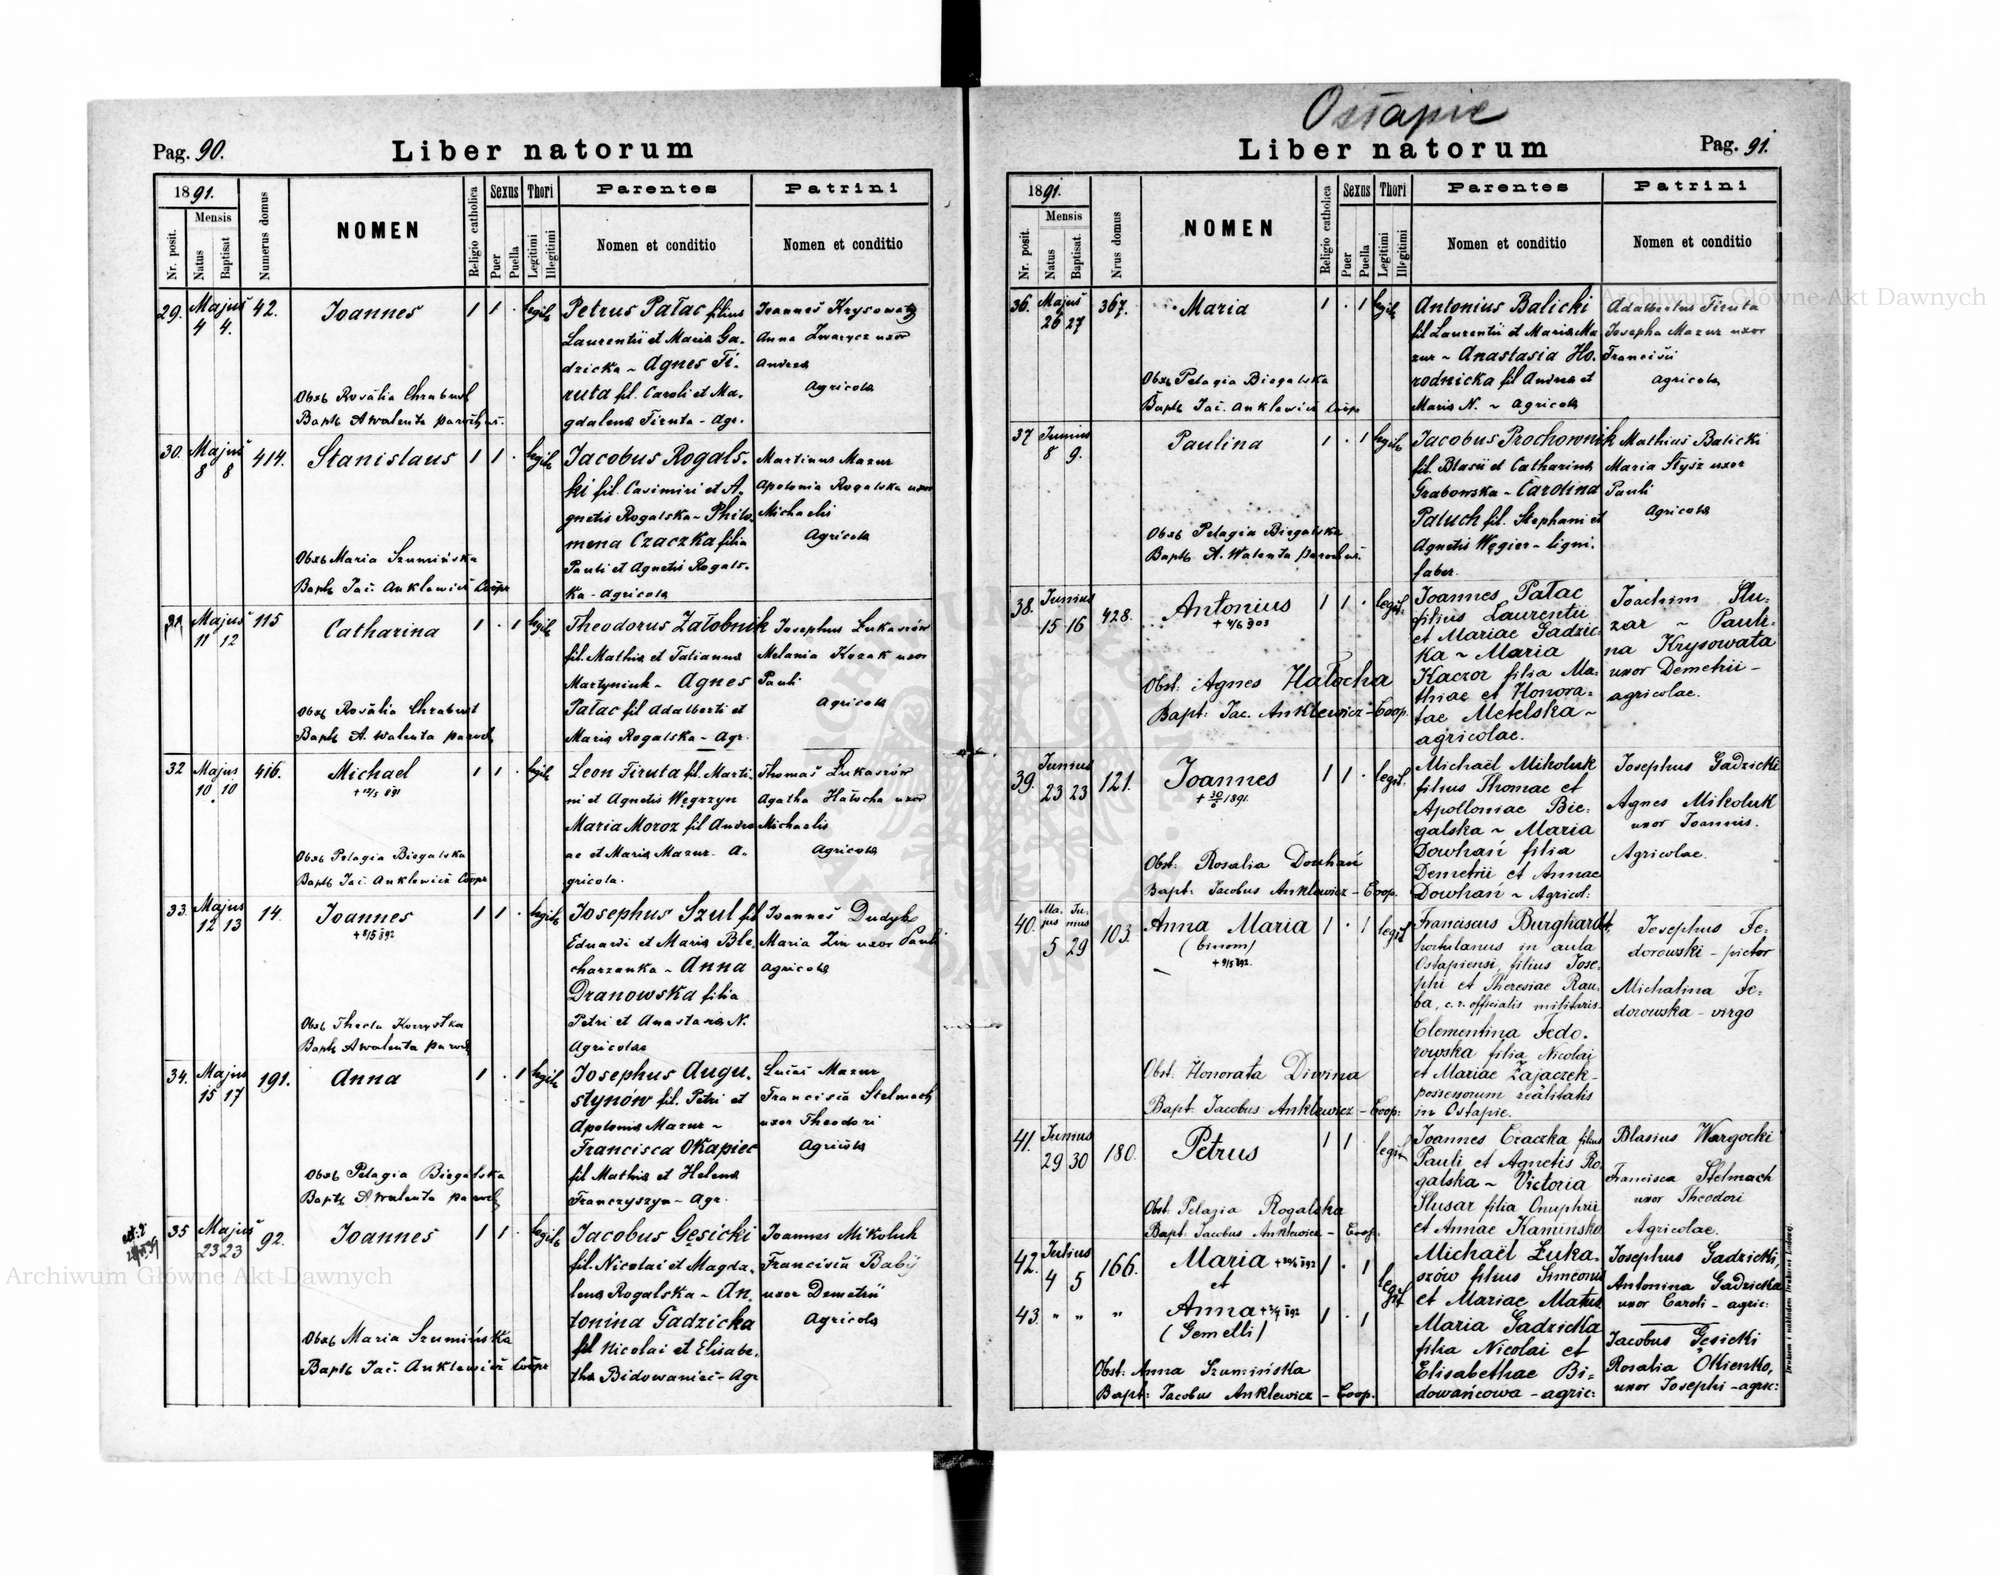 Ostapie
Pag. 90.
Liber natorum
1891.
Mensis
Nr. posit.
Natus
Baptisat
Numerus domus
NOMEN
Religio catholica
Sexus
Puer
Puella
Thori
Legitimi
Illegitimi
Parentes
Nomen et conditio
Patrini
Nomen et conditio
29. Majus 4 4. 42. Joannes 1 1 . legit
Petrus Pałac filius
Laurentii et Maria Ga-
dzicka ~ Agnes Fi-
ruta fil. Caroli et Ma-
gdalena Firuta - Agr.
Joannes Krysowaty
Anna Zwarycz uxor
Andrea
Agricola
Obst Rosalia Chrabust
Bapt A Walenta parochus.
30. Majus 8 8 414. Stanislaus 1 1 . legit
Jacobus Rogals-
ki fil. Casimiri et A-
gnetis Rogalska ~ Philo-
mena Czaczka filia
Pauli et Agnetis Rogals-
ka - agricola
Martinus Mazur
Apolonia Rogalska uxor
Michaelis
Agricola
Obst Maria Szumińska
Bapt Jac. Anklewicz Coopr
31. Majus 11 12 115 Catharina 1 . 1 legit
Theodorus Załobnik
fil. Mathia et Tatianna
Martyniuk - Agnes
Pałac fil Adalberti et
Maria Rogalska - Agr.
Josephus Łukaszów
Melania Kozak uxor
Pauli
Agricola
Obst Rosalia Chrabust
Bapt A. Walenta paroch
32 Majus 10 10 416. Michael 1 1 . legit
+ 12/5 891
Leon Firuta fil. Marti-
ni et Agnetis Węgrzyn
Maria Moroz fil Andre
ae et Maria Mazur. A-
gricola.
Thomas Łukaszów
Agatha Hałocha uxor
Michaelis
Agricola
Obst Pelagia Biegalska
Bapt Jac. Anklewicz Coopr
33. Majus 12 13 14. Joannes 1 1 . legit
+ 8/5 892
Josephus Szul fil
Eduardi et Maria Ble-
charzanka ~ Anna
Dranowska filia
Petri et Anastasia N.
Agricolae
Joannes Dudyk
Maria Zin uxor Pauli
Agricola
Obst Thecla Korzystka
Bapt A Walenta paroch
34. Majus 15 17 191. Anna 1 . 1 legit
Josephus Augu-
stynów fil. Petri et
Apolonia Mazur ~
Francisca Okapiec
fil Mathia et Helena
Franczyszyn ~ Agr.
Lucas Mazur
Francisca Stelmach
uxor Theodori
Agricola
Obst Pelagia Biegalska
Bapt A Walenta paroch
35 Majus 23 23 92. Joannes 1 1 . legit
Jacobus Gęsicki
fil. Nicolai et Magda-
lena Rogalska ~ An-
tonina Gadzicka
fil Nicolai et Elisabe-
tha Bidowaniec - Agr
Joannes Mikoluk
Francisca Babij
uxor Demetrii
Agricola
Obst Maria Szumińska
Bapt Jac. Anklewicz Coopr
Liber natorum
Pag. 91.
1891.
Mensis
Nr. posit.
Natus
Baptisat.
Nrus domus
NOMEN
Religio catholica
Sexus
Puer
Puella
Thori
Legitimi
Illegitimi
Parentes
Nomen et conditio
Patrini
Nomen et conditio
36. Majus 26 27 367. Maria 1 . 1 legit
Antonius Balicki
fil Laurentii et Maria Ma-
zur ~ Anastasia Ho-
rodnicka fil Andrea et
Maria N. ~ Agricola
Adalbertus Firuta
Josepha Mazur uxor
Francisci
Agricola
Obst Pelagia Biegalska
Bapt Jac. Anklewicz Coopr
37 Junius 8 9. Paulina 1 . 1 legit
Jacobus Prochownik
fil. Blasii et Catharina
Grabowska - Carolina
Paluch fil. Stephani et
Agnetis Węgier - ligni-
faber.
Mathias Balicki
Maria Słysz uxor
Pauli
Agricola
Obst Pelagia Biegalska
Bapt A. Walenta parochus.
38. Junius 15 16 428. Antonius 1 1 . legit.
+ 4/6 903
Joannes Pałac
filius Laurentii
et Mariae Gadzic-
ka ~ Maria
Kaczor filia Ma-
thiae et Honora-
tae Metelska ~
agricolae.
Joachim Slu-
zar ~ Pauli-
na Krysowata
uxor Demetrii -
agricolae.
Obst: Agnes Hałocha
Bapt: Jac. Anklewicz - Coop.
39. Junius 23 23 121. Joannes 1 1 . legit.
+ 30/6 1891.
Michaël Mikoluk
filius Thomae et
Apolloniae Bie-
galska ~ Maria
Dowhań filia
Demetrii et Annae
Dowhań ~ Agricol:
Josephus Gadzicki
Agnes Mikoluk
uxor Joannis.
Agricolae.
Obst: Rosalia Dowhań
Bapt: Jacobus Anklewicz - Coop.
40. Majus 5 Junius 29 103. Anna Maria 1 . 1 legit
(binom)
+ 9/5 892.
Franciscus Burghardt,
hortulanus in aula
Ostapiensi, filius Jose-
phi et Theresiae Rau-
ba, c. r. officialis militaris-
Clementina Fedo-
rowska filia Nicolai
et Mariae Zajaczek-
possessorum realitatis
in Ostapie.
Josephus Fe-
dorowski - pictor
Michalina Fe-
dorowska - virgo
Obst. Honorata Diwina
Bapt: Jacobus Anklewicz - Coop:
41. Junius 29 30 180. Petrus 1 1 . legit
Joannes Czaczka filius
Pauli et Agnetis Ro-
galska ~ Victoria
Slusar filia Onuphrii
et Annae Kaminska
Blasius Wargocki
Francisca Stelmach
uxor Theodori
Agricolae.
Obst: Pelagia Rogalska
Bapt: Jacobus Anklewicz - Coop.
42. Julius 4 5 166. Maria 1 . 1 legit
et
43. " " " Anna 1 . 1
(Gemelli)
Michaël Łuka-
szów filius Simeonis
et Mariae Matus
Maria Gadzicka
filia Nicolai et
Elisabethae Bi-
dowańcowa - agric:
Josephus Gadzicki,
Antonina Gadzicka
uxor Caroli - agric:
Jacobus Gęsicki
Rosalia Okienko,
uxor Josephi - agric:
Obst: Anna Szumińska
Bapt: Jacobus Anklewicz - Coop.
Archiwum Główne Akt Dawnych
Archiwum Główne Akt Dawnych